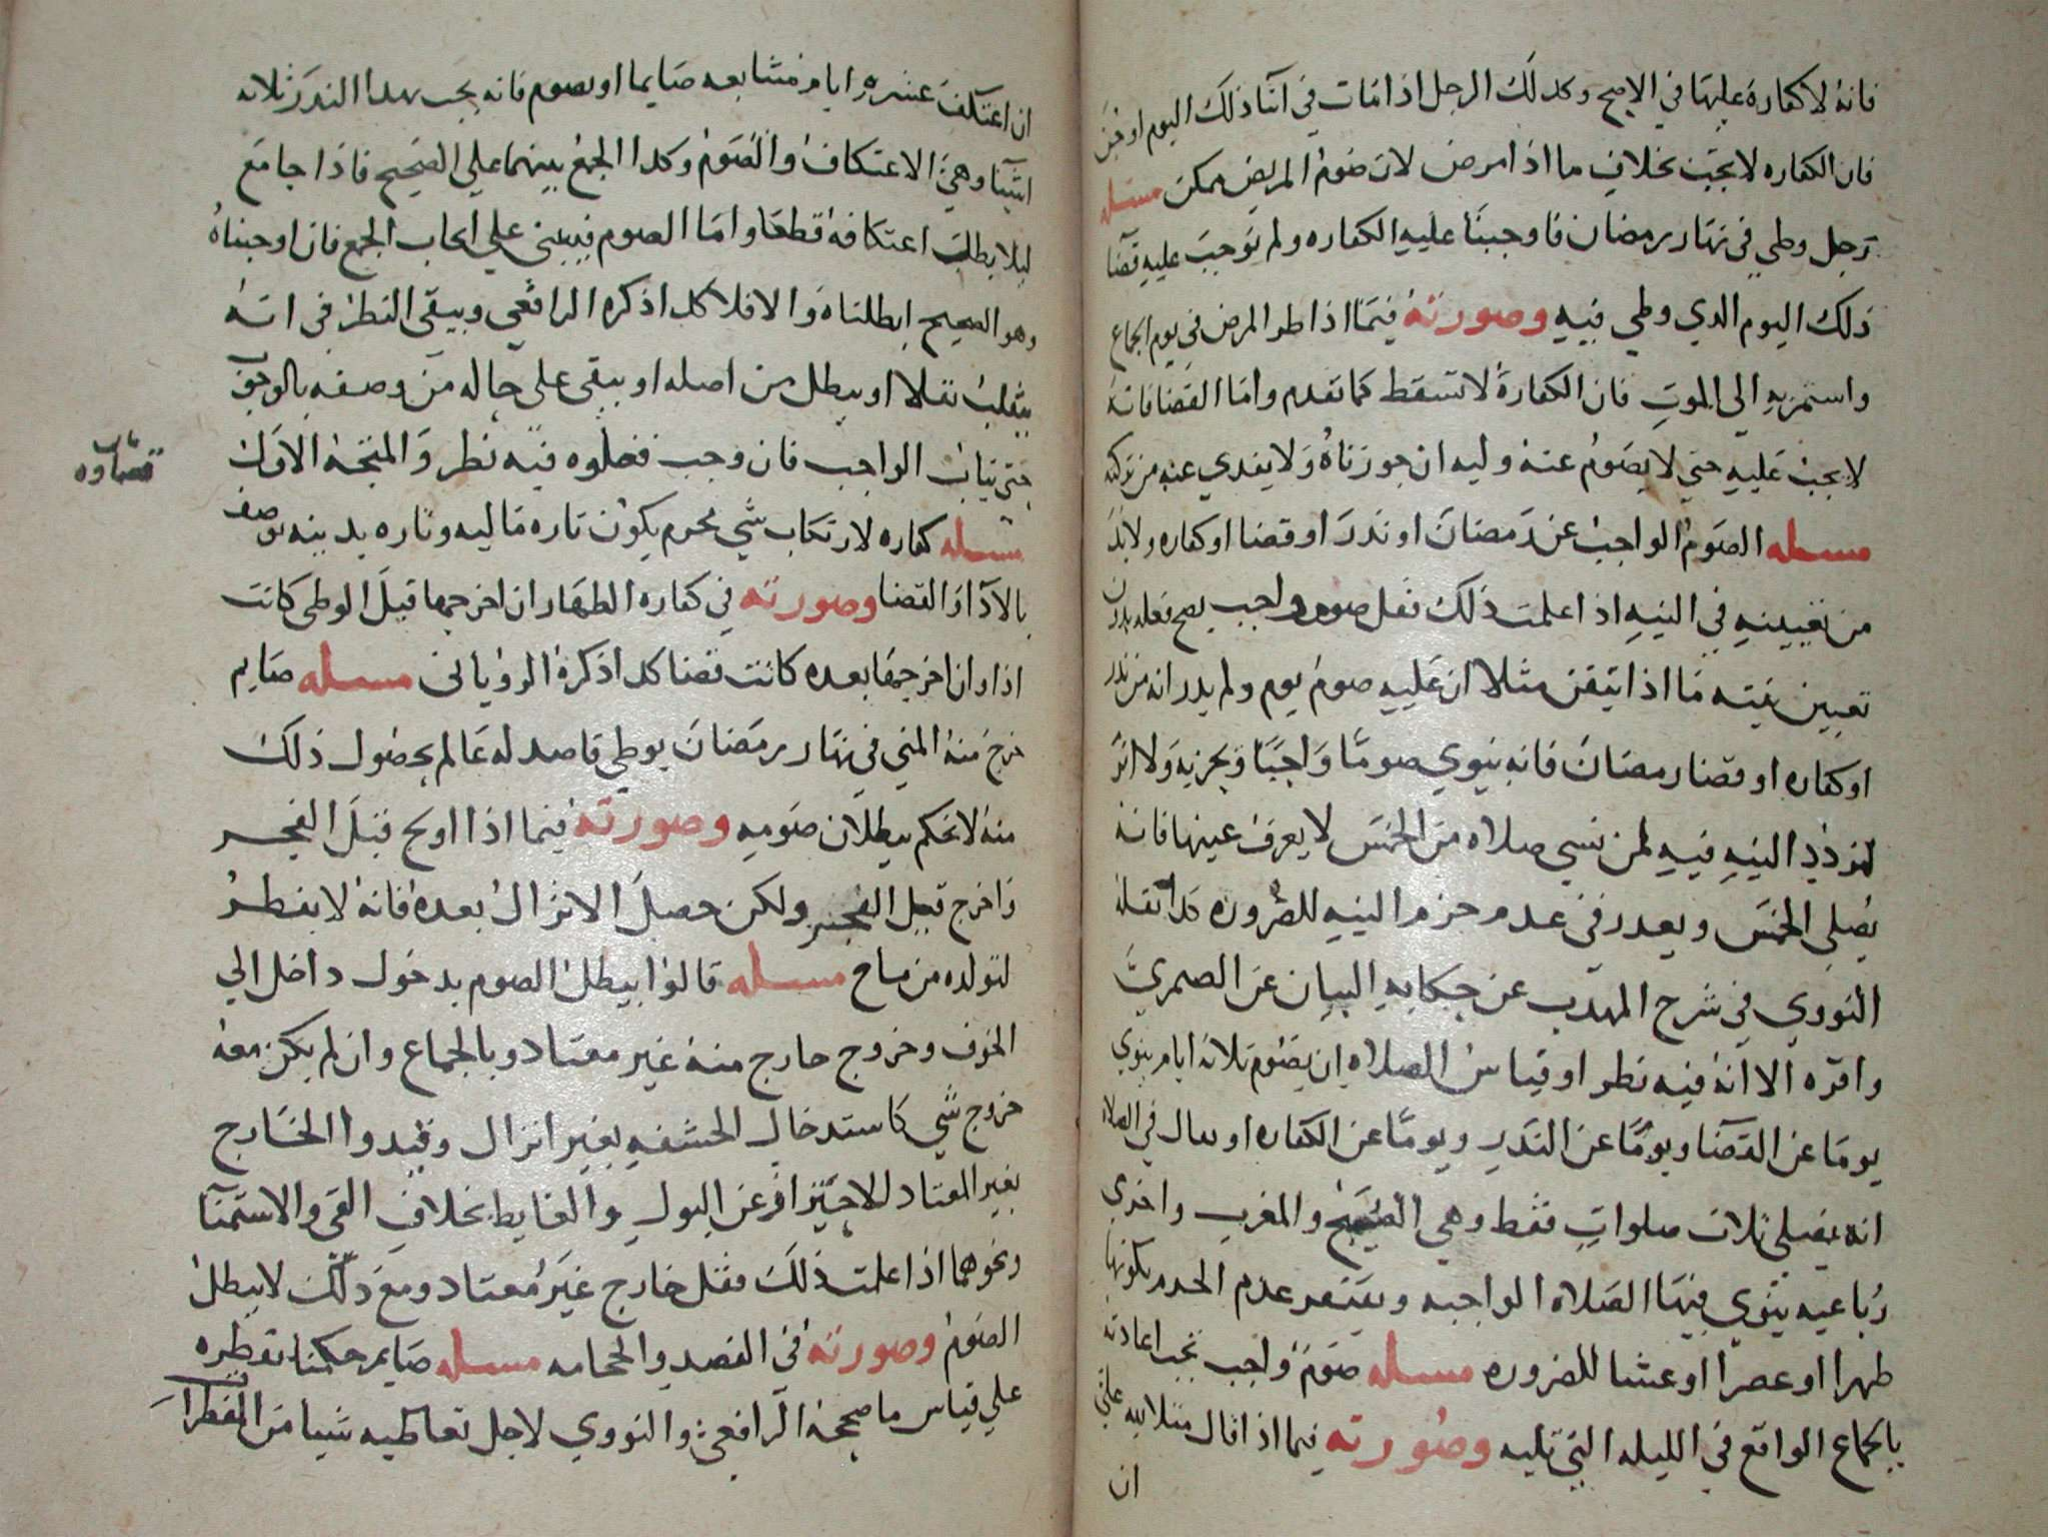 فانه لا كفاره عليها في الاصح وكدلك الرجل اذا مات في اثنا ذلك اليوم او جن
فان الكفاره لا تجب بخلاف ما اذا مرض لان صوم المريض ممكن مسله
رجل وطي في نهار رمضان فاوجبنا عليه الكفاره ولم نوجب عليه قضا
ذلك اليوم الدي وطي فيه وصورته فيما اذا طرا المرض في يوم الجماع
واستمر به الي الموت فان الكفارة لا تسقط كما تقدم واما القضا فانه
لا يجب عليه حتي لا يصوم عنه وليه ان جوزناه ولا يفدي عنه من تركته
مسله الصوم الواجب عن رمضان او ندر او قضا او كفاره ولا بد
من تعيينه في النيه اذا علمت ذلك فقل صوم واجب يصح فعله بدون
تعيين نيته ما اذا تيقن مثلا ان عليه صوم يوم ولم يدر انه من ندر
او كفاره او قضا رمضان فانه ينوي صوما واجبا ويجزيه ولا اثر
لتردد النيه فيه لمن نسي صلاه من الخمس لا يعرف عينها فانه
يصلي الخمس ويعدر في عدم جزم النيه للضروره كدا نقله
النووي في شرح المهدب عن حكايه البيان عن الصمري
واقره الا انه فيه نظر او قياس الصلاه ان يصوم ثلاثة ايام ينوي
يوما عن القضا ويوما عن الندر ويوما عن الكفاره او يقال في الصلاه
انه يصلي ثلاث صلوات فقط وهي الصبح والمغرب واخري
رباعيه ينوي فيها الصلاه الواجبه ويغتفر عدم الجزم بكونها
ظهرا او عصرا او عشا للضروره مسله صوم واجب تجب اعادته
بالجماع الواقع في الليله التي تليه وصورته فيما اذا قال مثلا لله علي
ان
ان اعتكف عشره ايام متتابعه صايما او بصوم فانه يجب بهدا الندر ثلاثه
اشيا وهي الاعتكاف والصوم وكدا الجمع بينهما علي الصحيح فاذا جامع
ليلا بطل اعتكافه قطعا واما الصوم فيبني علي ايجاب الجمع فان اوجبناه
وهو الصحيح ابطلناه والا فلا كدا ذكره الرافعي وبيقي النظر في انه
ينقلب نفلا او يبطل من اصله او يبقي علي حاله من وصفه بالوجوب
حتي يثاب الواجب فان وجب فضلوه فيه نظر والمتجه الاول
ثاب
قضاوه
مسله كفاره لارتكاب شي محرم يكون تاره ماليه وتاره بدنيه توصف
بالادا والقضا وصورته في كفاره الظهار ان اخرجها قبل الوطي كانت
اذا وان اخرجها بعده كانت قضا كدا ذكره الروياني مسله صايم
خرج منه المني في نهار رمضان بوطي قاصد له عالم بحصول ذلك
منه لا نحكم ببطلان صومه وصورته فيما اذا اولج قبل الفجر
واخرج قبل الفجر ولكن حصل الانزال بعده فانه لا يفطر
لتولده من مباح مسله قالوا يبطل الصوم بدخول داخل الي
الجوف وخروج خارج منه غير معتاد وبالجماع وان لم يكن معه
خروج شي كاستدخال الحشفه بغير انزال وقيدوا الخارج
بغير المعتاد للاحتراز عن البول والغايط بخلاف القي والاستمنا
ونحوهما اذا علمت ذلك فقل خارج غير معتاد ومع ذلك لا يبطل
الصوم وصورته في الفصد والحجامه مسله صايم حكمنا بفطره
علي قياس ما صححه الرافعي والنووي لا جل تعاطيه شيا من المفطرات